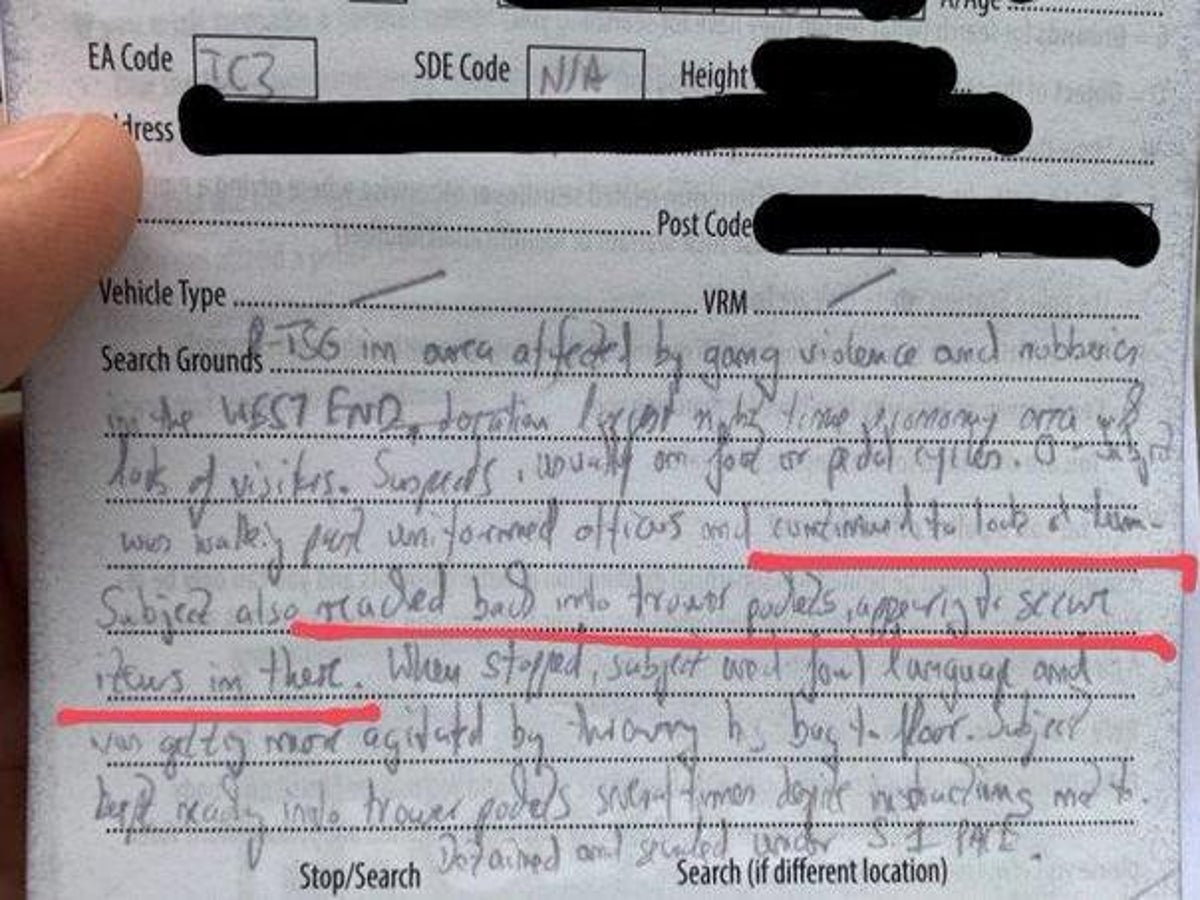 A/Age
EA Code IC3 SDE Code N/A Height
dress
Post Code
Vehicle Type VRM
Search Grounds P-TSG in area affected by gang violence and robberies
in the WEST END, location night time economy area
lots of visitors. Suspects, usually on foot or pedal cycles. O - Subject
was walking past uniformed officers and continued to look at them.
Subject also reached back into trouser pockets, appearing to secure
items in there. When stopped, subject used foul language and
was getting more agitated by throwing his bag to floor. Subject
kept into trouser pockets several times despite instructions not to.
Detained and searched under S.1 PACE.
Stop/Search Search (if different location)